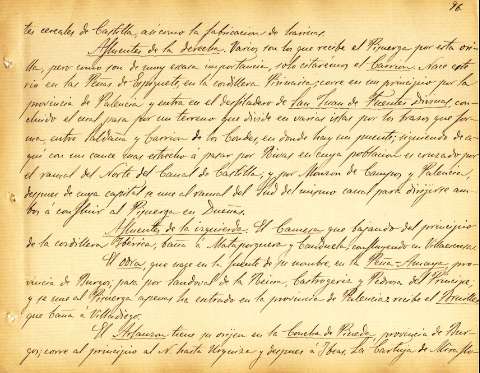 96.
tes cereales de Castilla, así como la fabricacion de harinas.
Afluentes de la derecha. Varios son los que recibe el Pisuerga por esta ori-
lla, pero como son de muy escasa importancia, solo citaremos el Carrion. Nace este
rio en las Peñas de Espigüete, en la cordillera Pirenaica; corre en un principio por la
provincia de Palencia y entra en el desfiladero de San Juan de Fuentes Divinas, con-
cluido el cual pasa por un terreno que divide en varias islas por los brazos que for-
ma entre Saldaña y Carrion de los Condes, en donde hay un puente; siguiendo de a-
qui con un cauce mas estrecho á pasar por Rivas en cuya poblacion es cruzado por
el ramal del Norte del Canal de Castilla, y por Monzon de Campos y Palencia,
despues de cuya capital se une al ramal del Sud del mismo canal para dirijirse am-
bos á confluir al Pisuerga en Dueñas.
Afluentes de la izquierda. El Camesa que bajando del principio
de la cordillera Ibérica, baña á Mataporquera y confluyendo en
El Odra, que nace en la fuente de su nombre, en la Peña-Amaya, pro-
vincia de Burgos, pasa por Sandoval de la Reina, Castrogeriz y Pedrosa del Principe,
y se une al Pisuerga apenas ha entrado en la provincia de Palencia: recibe el
que baña á Villadiego.
El Arlanzon tiene su origen en la Concha de Pineda, provincia de Bur-
gos; corre al principio al N. hasta y despues á Ibeas, La Cartuja de Miraflo-